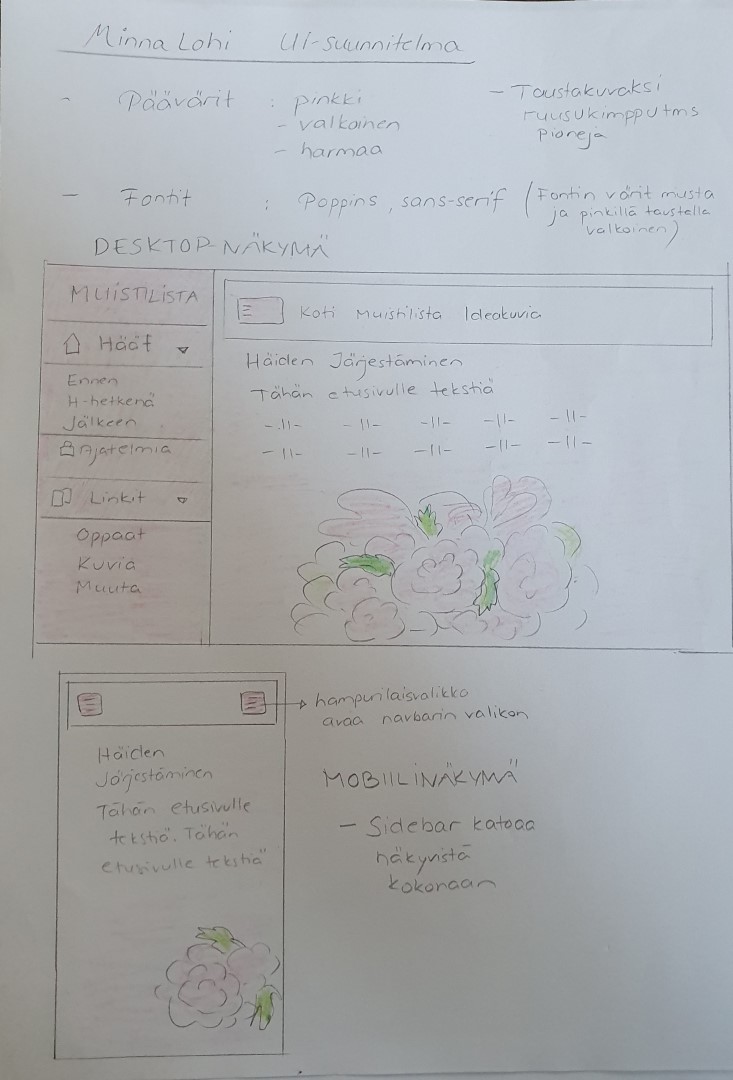 Minna Lohi UI-suunnitelma
- Päävärit : pinkki
- valkoinen
- harmaa
- Taustakuvaksi
ruusukimppu tms
pioneja
- Fontit : Poppins, sans-serif (Fontin värit musta
ja pinkillä taustalla
valkoinen)
DESKTOP-NÄKYMÄ
MUISTILISTA
Häät
Ennen
H-hetkenä
Jälkeen
Ajatelmia
Linkit
Oppaat
Kuvia
Muuta
Koti Muistilista Ideakuvia
Häiden Järjestäminen
Tähän etusivulle tekstiä
-11- -11- -11- -11- -11-
-11- -11- -11- -11- -11-
hampurilaisvalikko
avaa navbarin valikon
Häiden
Järjestäminen
Tähän etusivulle
tekstiä. Tähän
etusivulle tekstiä
MOBIILINÄKYMÄ
- Sidebar katoaa
näkyvistä
kokonaan